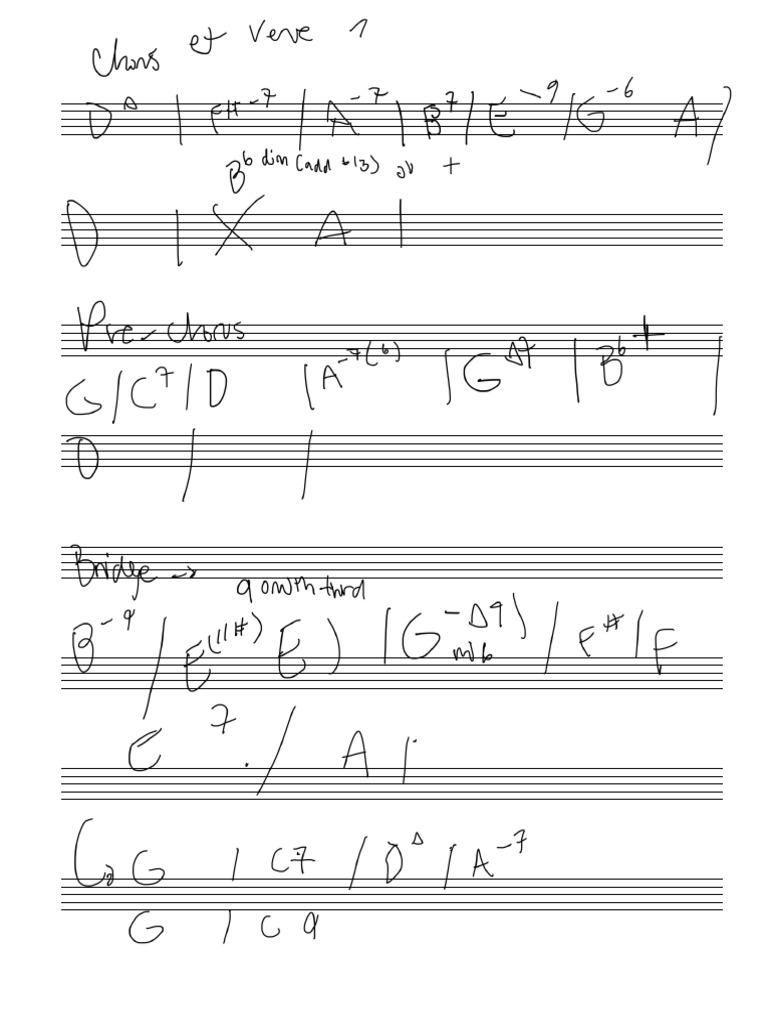 Chorus et Verve 1
D△ | F#-7 | A-7 | B7 | E-9 | G-6 A /
Bb dim (add b13) or +
D | X A |
Pre-chorus
G / C7 / D | A-7(b) | G△7 | Bb+ |
D / /
Bridge →
9 on th third
B-9 / E(11#) E ) | G-△9) / F# / F
m/b
E 7 . / A |
G / C7 / D△ / A-7
G / C 9